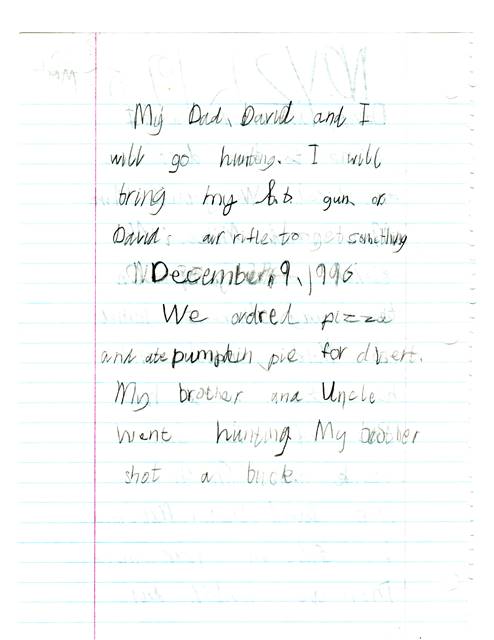 My Dad, David and I
will go hunting. I will
bring my b.b. gun or
David's air rifle to something
December, 9, 1996
We ordred pizza
and ate pumpkin pie for desert.
My brother and Uncle
went hunting My brother
shot a buck